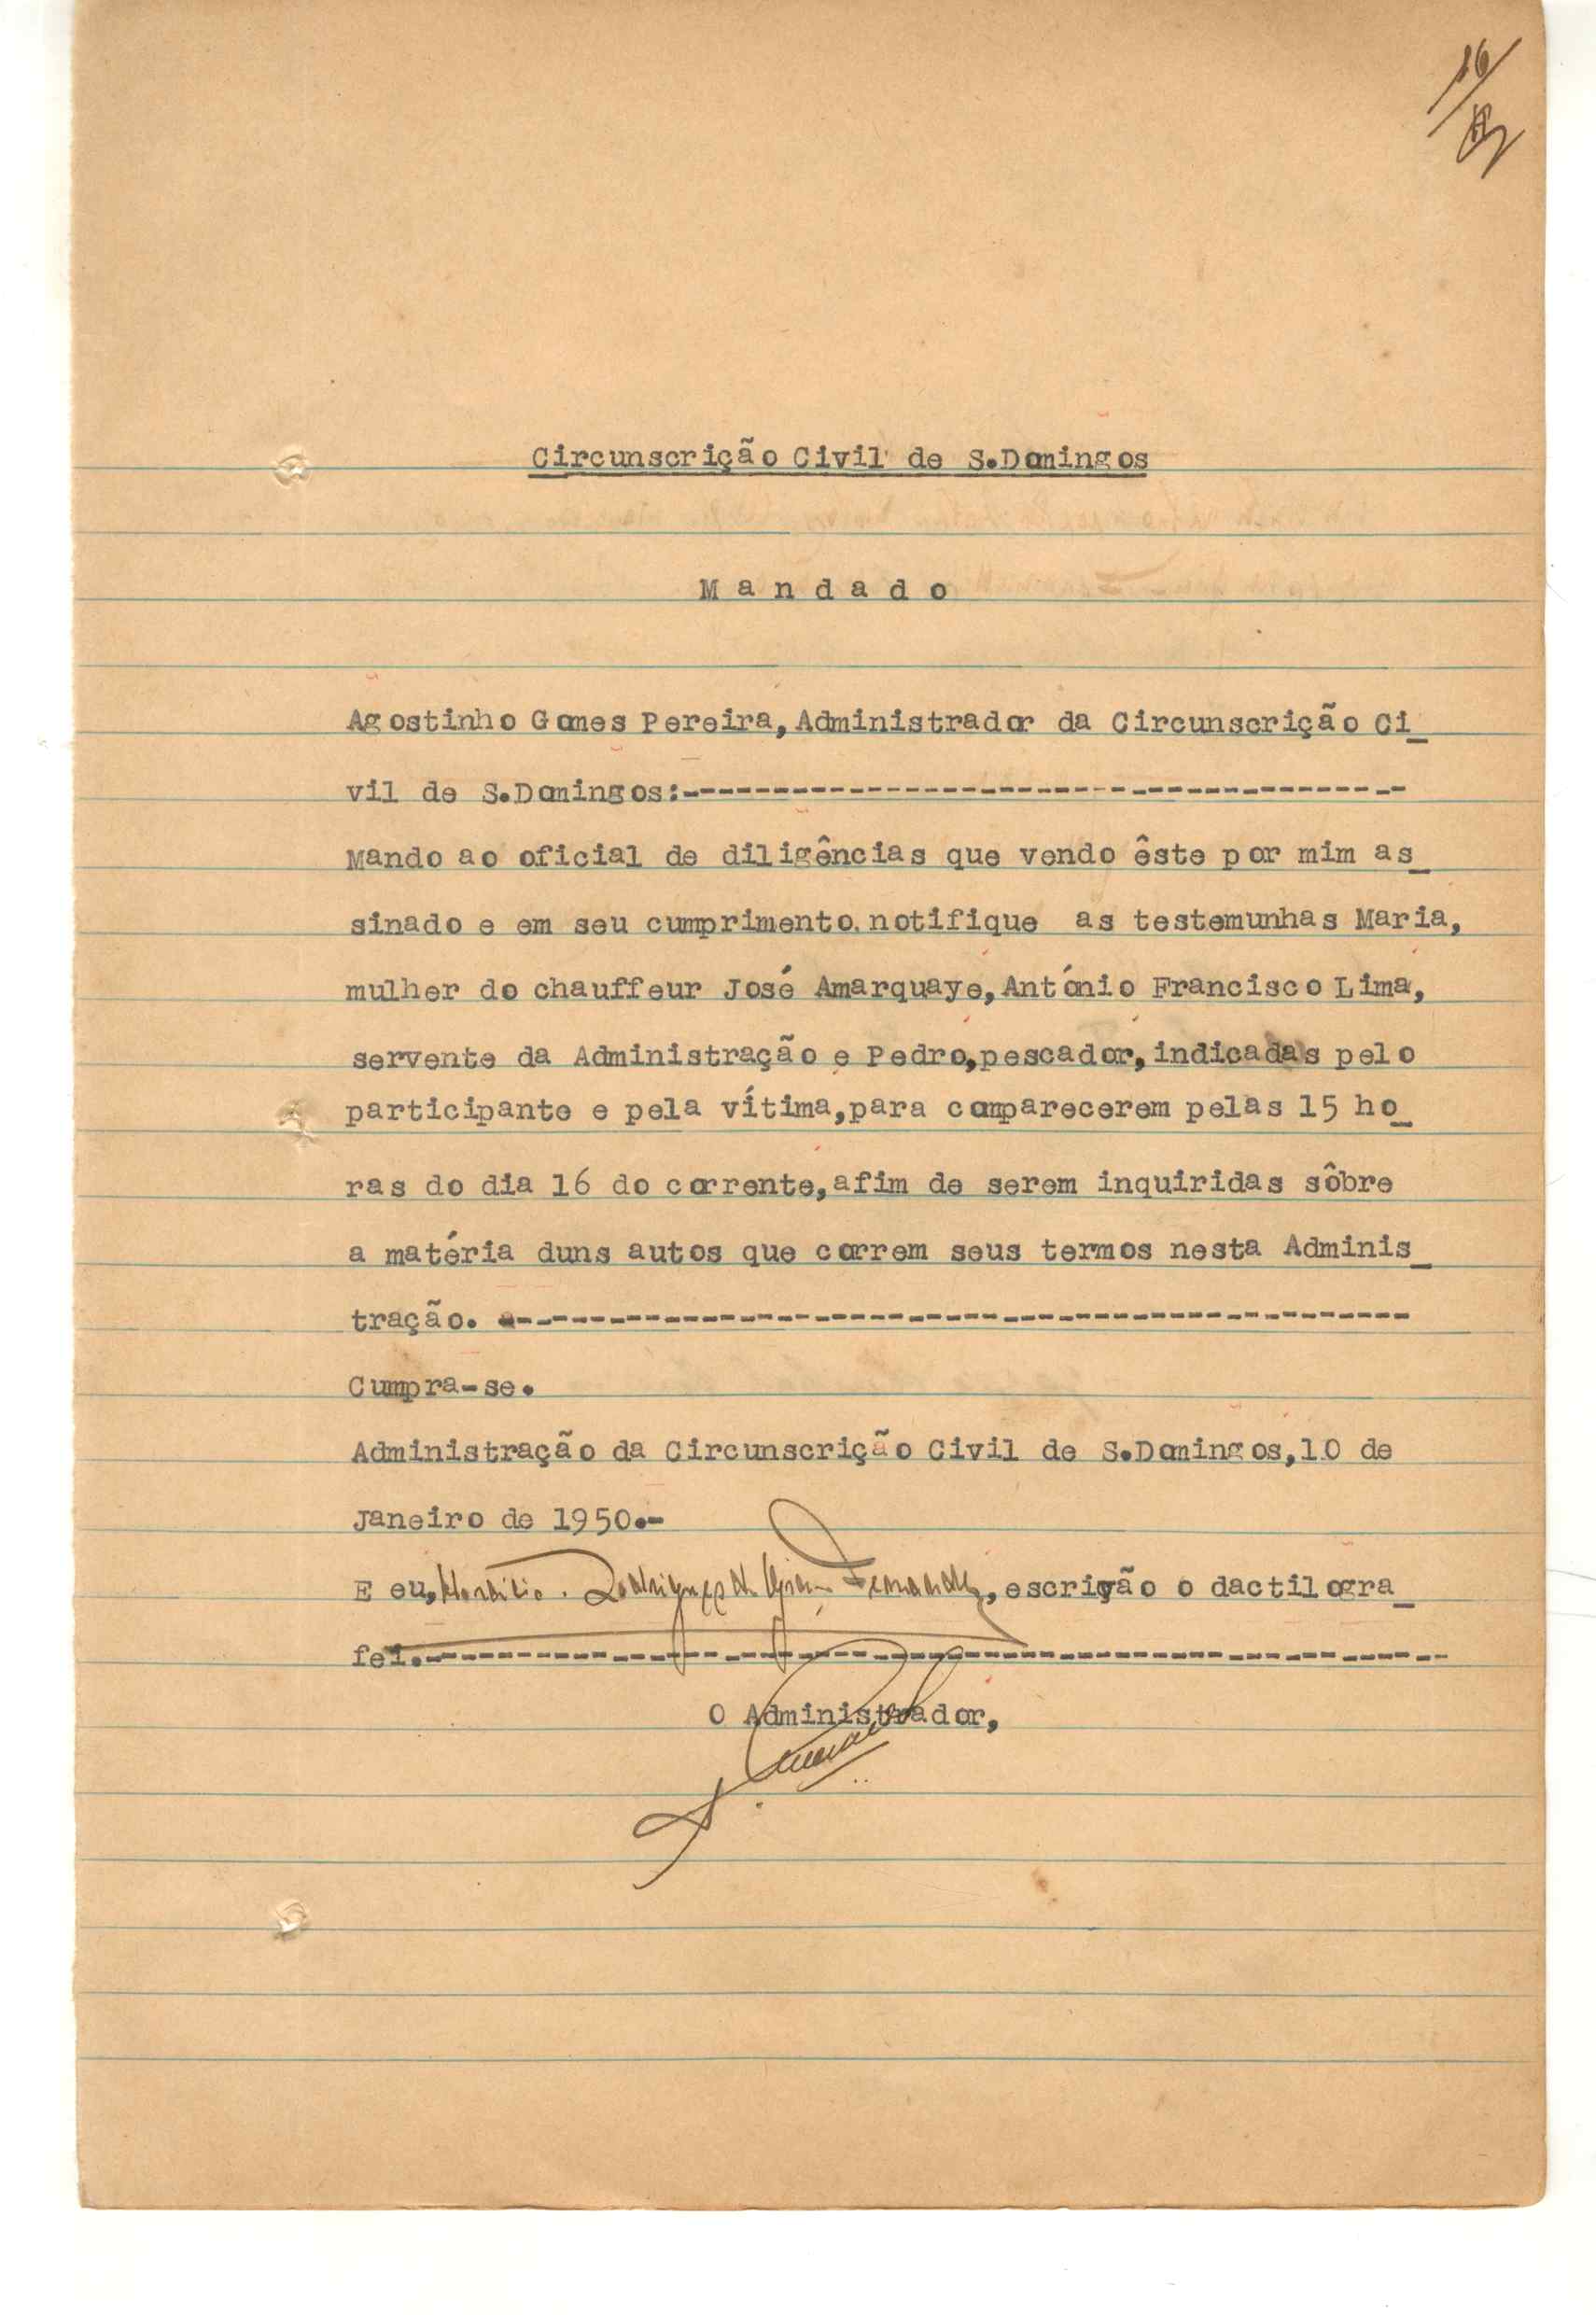 16
Circunscrição Civil de S.Domingos
M a n d a d o
Agostinho Gomes Pereira, Administrador da Circunscrição Ci_
vil de S.Domingos:-----------------------------------------
Mando ao oficial de diligências que vendo êste por mim as_
sinado e em seu cumprimento notifique as testemunhas Maria,
mulher do chauffeur José Amarquaye, António Francisco Lima,
servente da Administração e Pedro,pescador, indicadas pelo
participante e pela vítima,para comparecerem pelas 15 ho_
ras do dia 16 do corrente,afim de serem inquiridas sôbre
a matéria duns autos que correm seus termos nesta Adminis_
tração. ---------------------------------------------------
Cumpra-se.
Administração da Circunscrição Civil de S.Domingos,10 de
Janeiro de 1950.-
E eu, Fernandes, escrivão o dactilogra_
fei.-------------------------------------------------------
O Administrador,